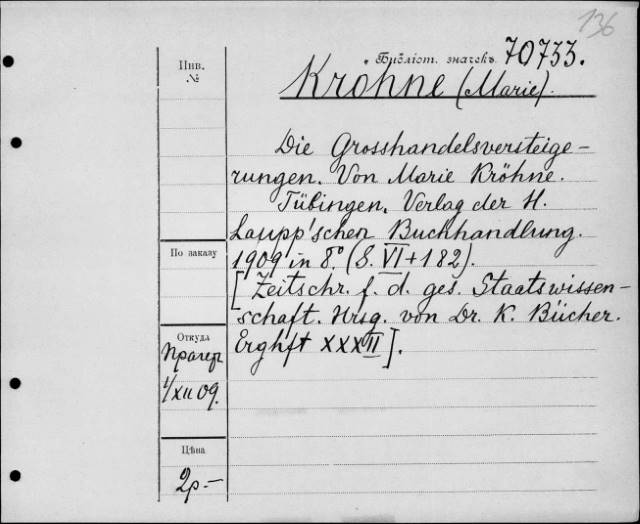 136
Библіот. значекъ 70733.
Инв.
№
Kröhne (Marie).
Die Grosshandelsversteige-
rungen. Von Marie Kröhne.
Tübingen, Verlag der H.
Laupp'schen Buchhandlung.
1909 in 8.° (S. VI + 182).
[Zeitschr. f. d. ges. Staatswissen-
schaft. Hrsg. von Dr. K. Bücher.
Erghft XXXII].
По заказу
Откуда
Прагеръ
1/XII 09.
Цѣна
2р.–